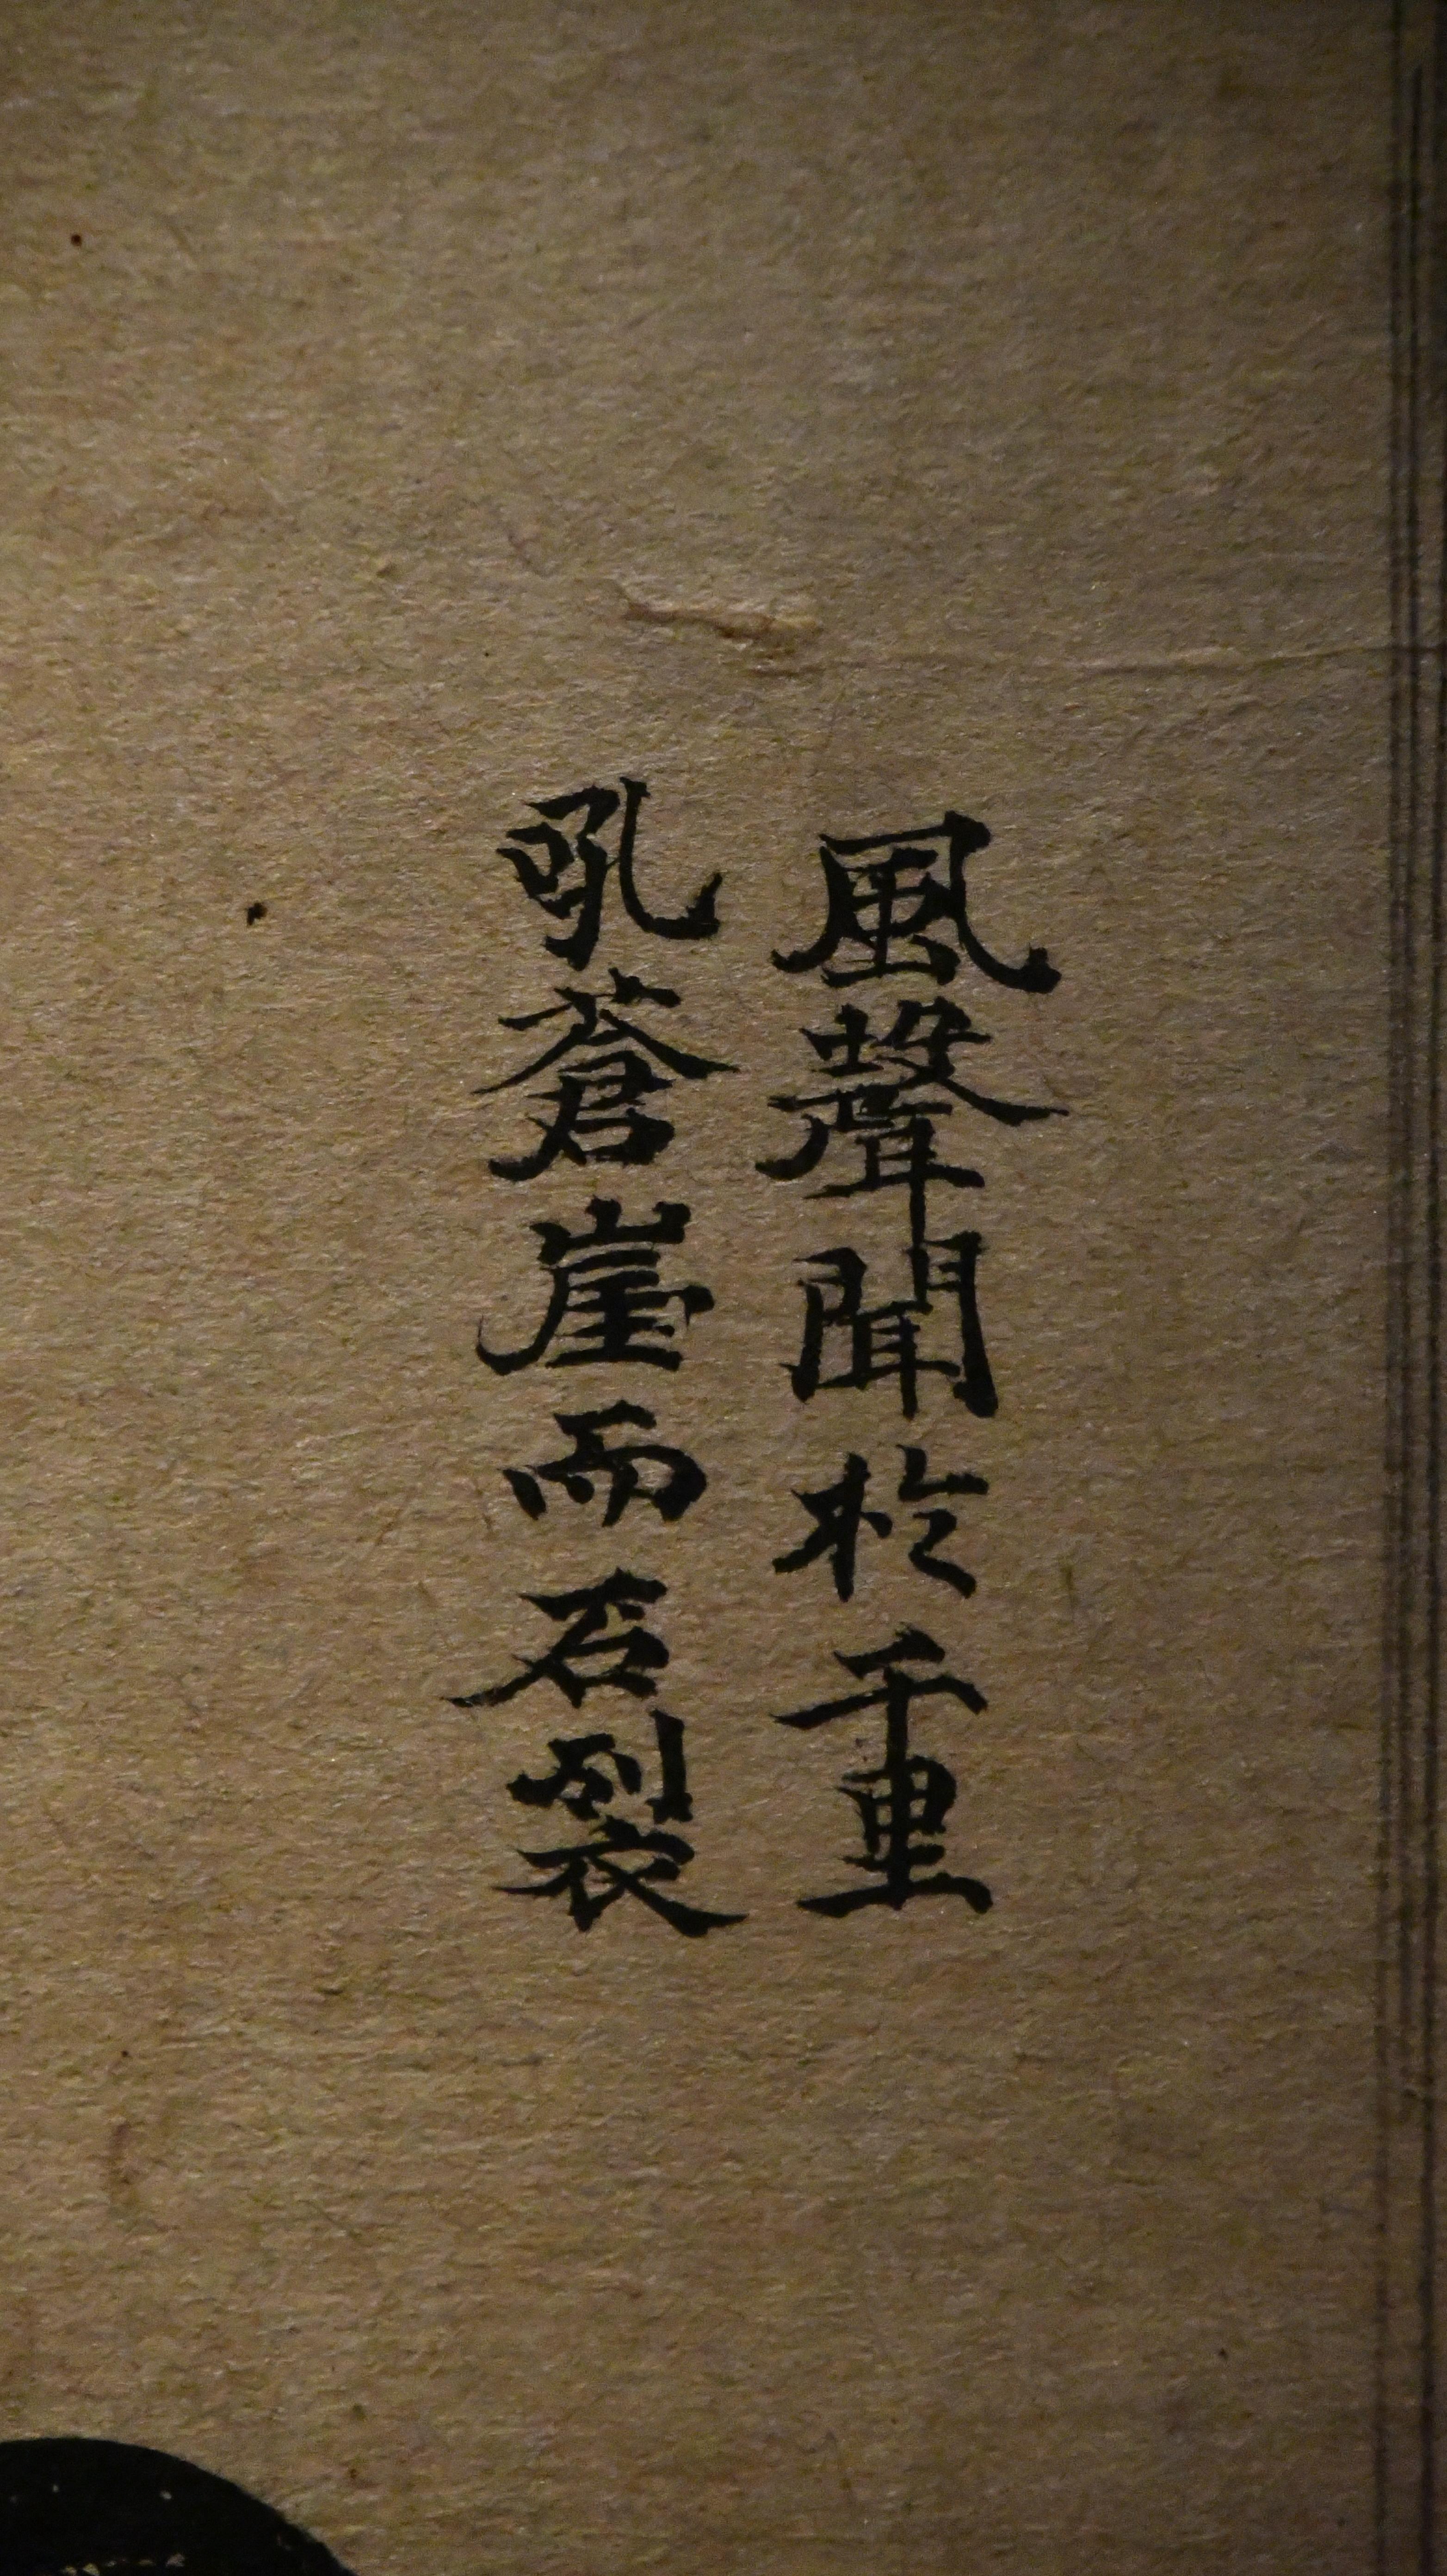 風聲聞於千重
吼蒼崖而石裂